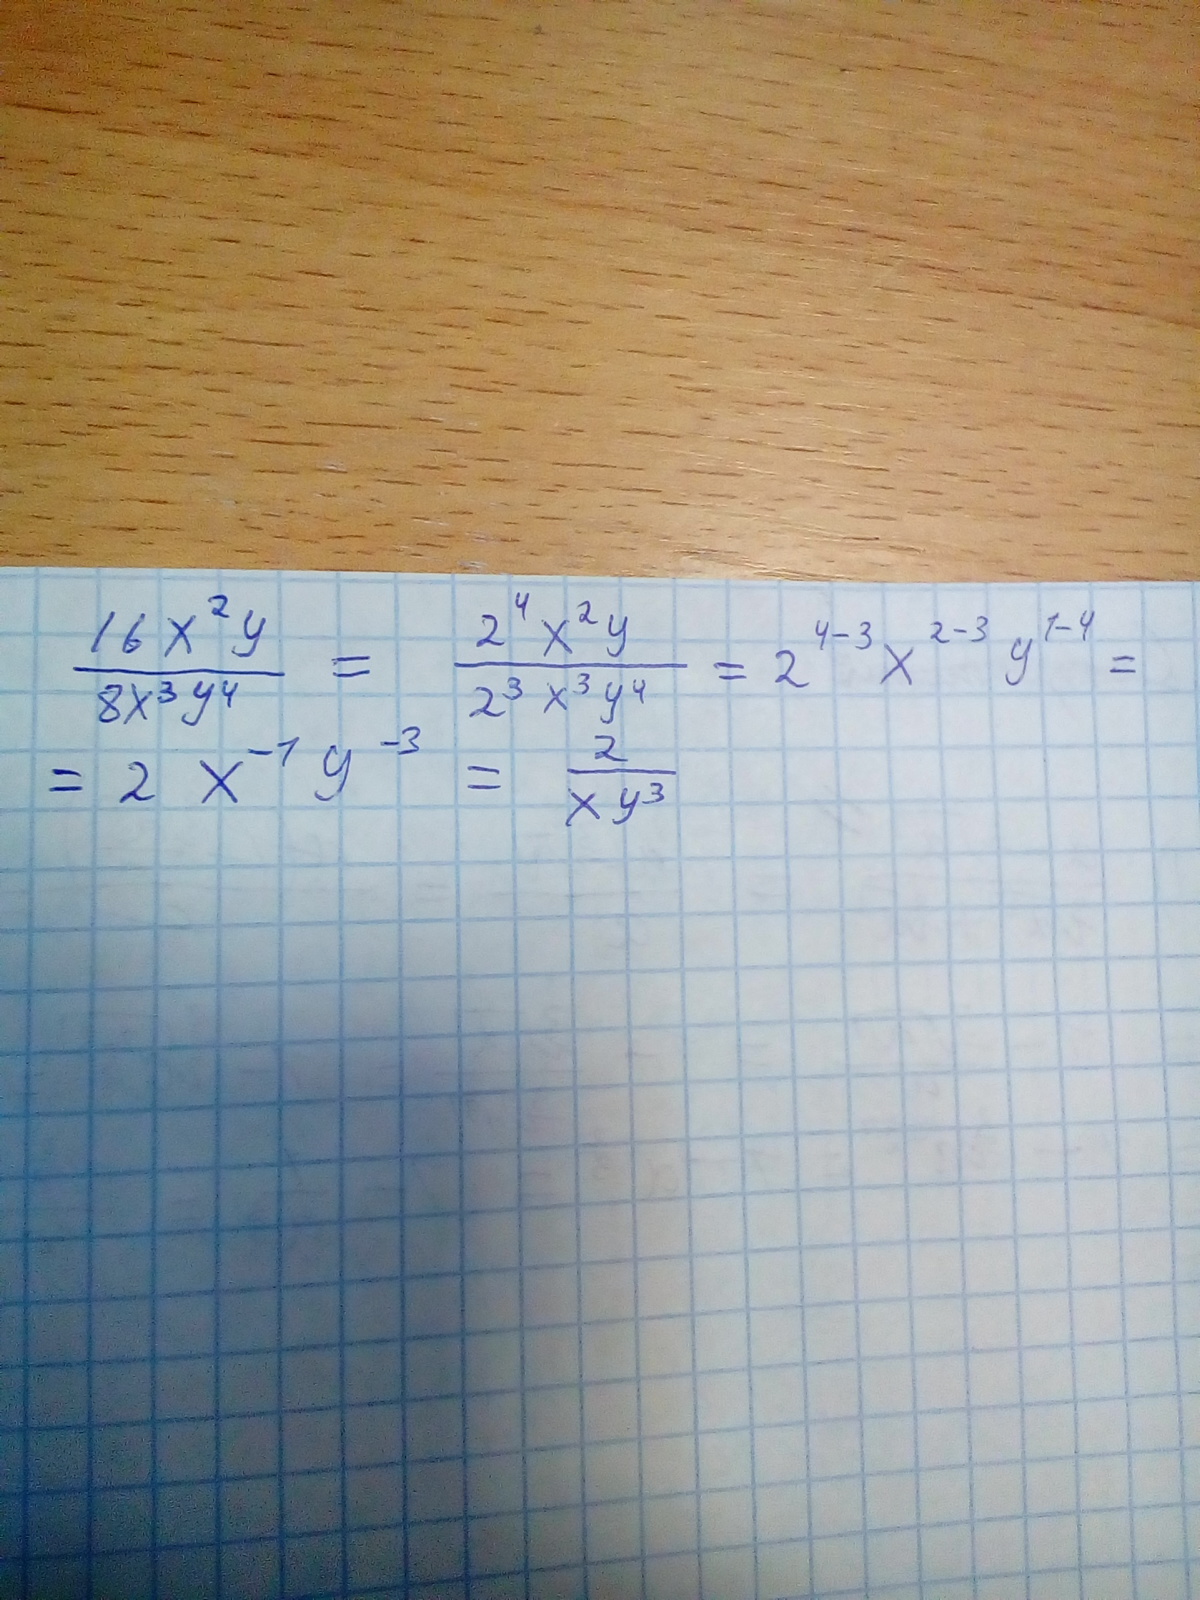 \frac{16x^2y}{8x^3y^4} = \frac{2^4x^2y}{2^3x^3y^4} = 2^{4-3}x^{2-3}y^{1-4} =
= 2x^{-1}y^{-3} = \frac{2}{xy^3}